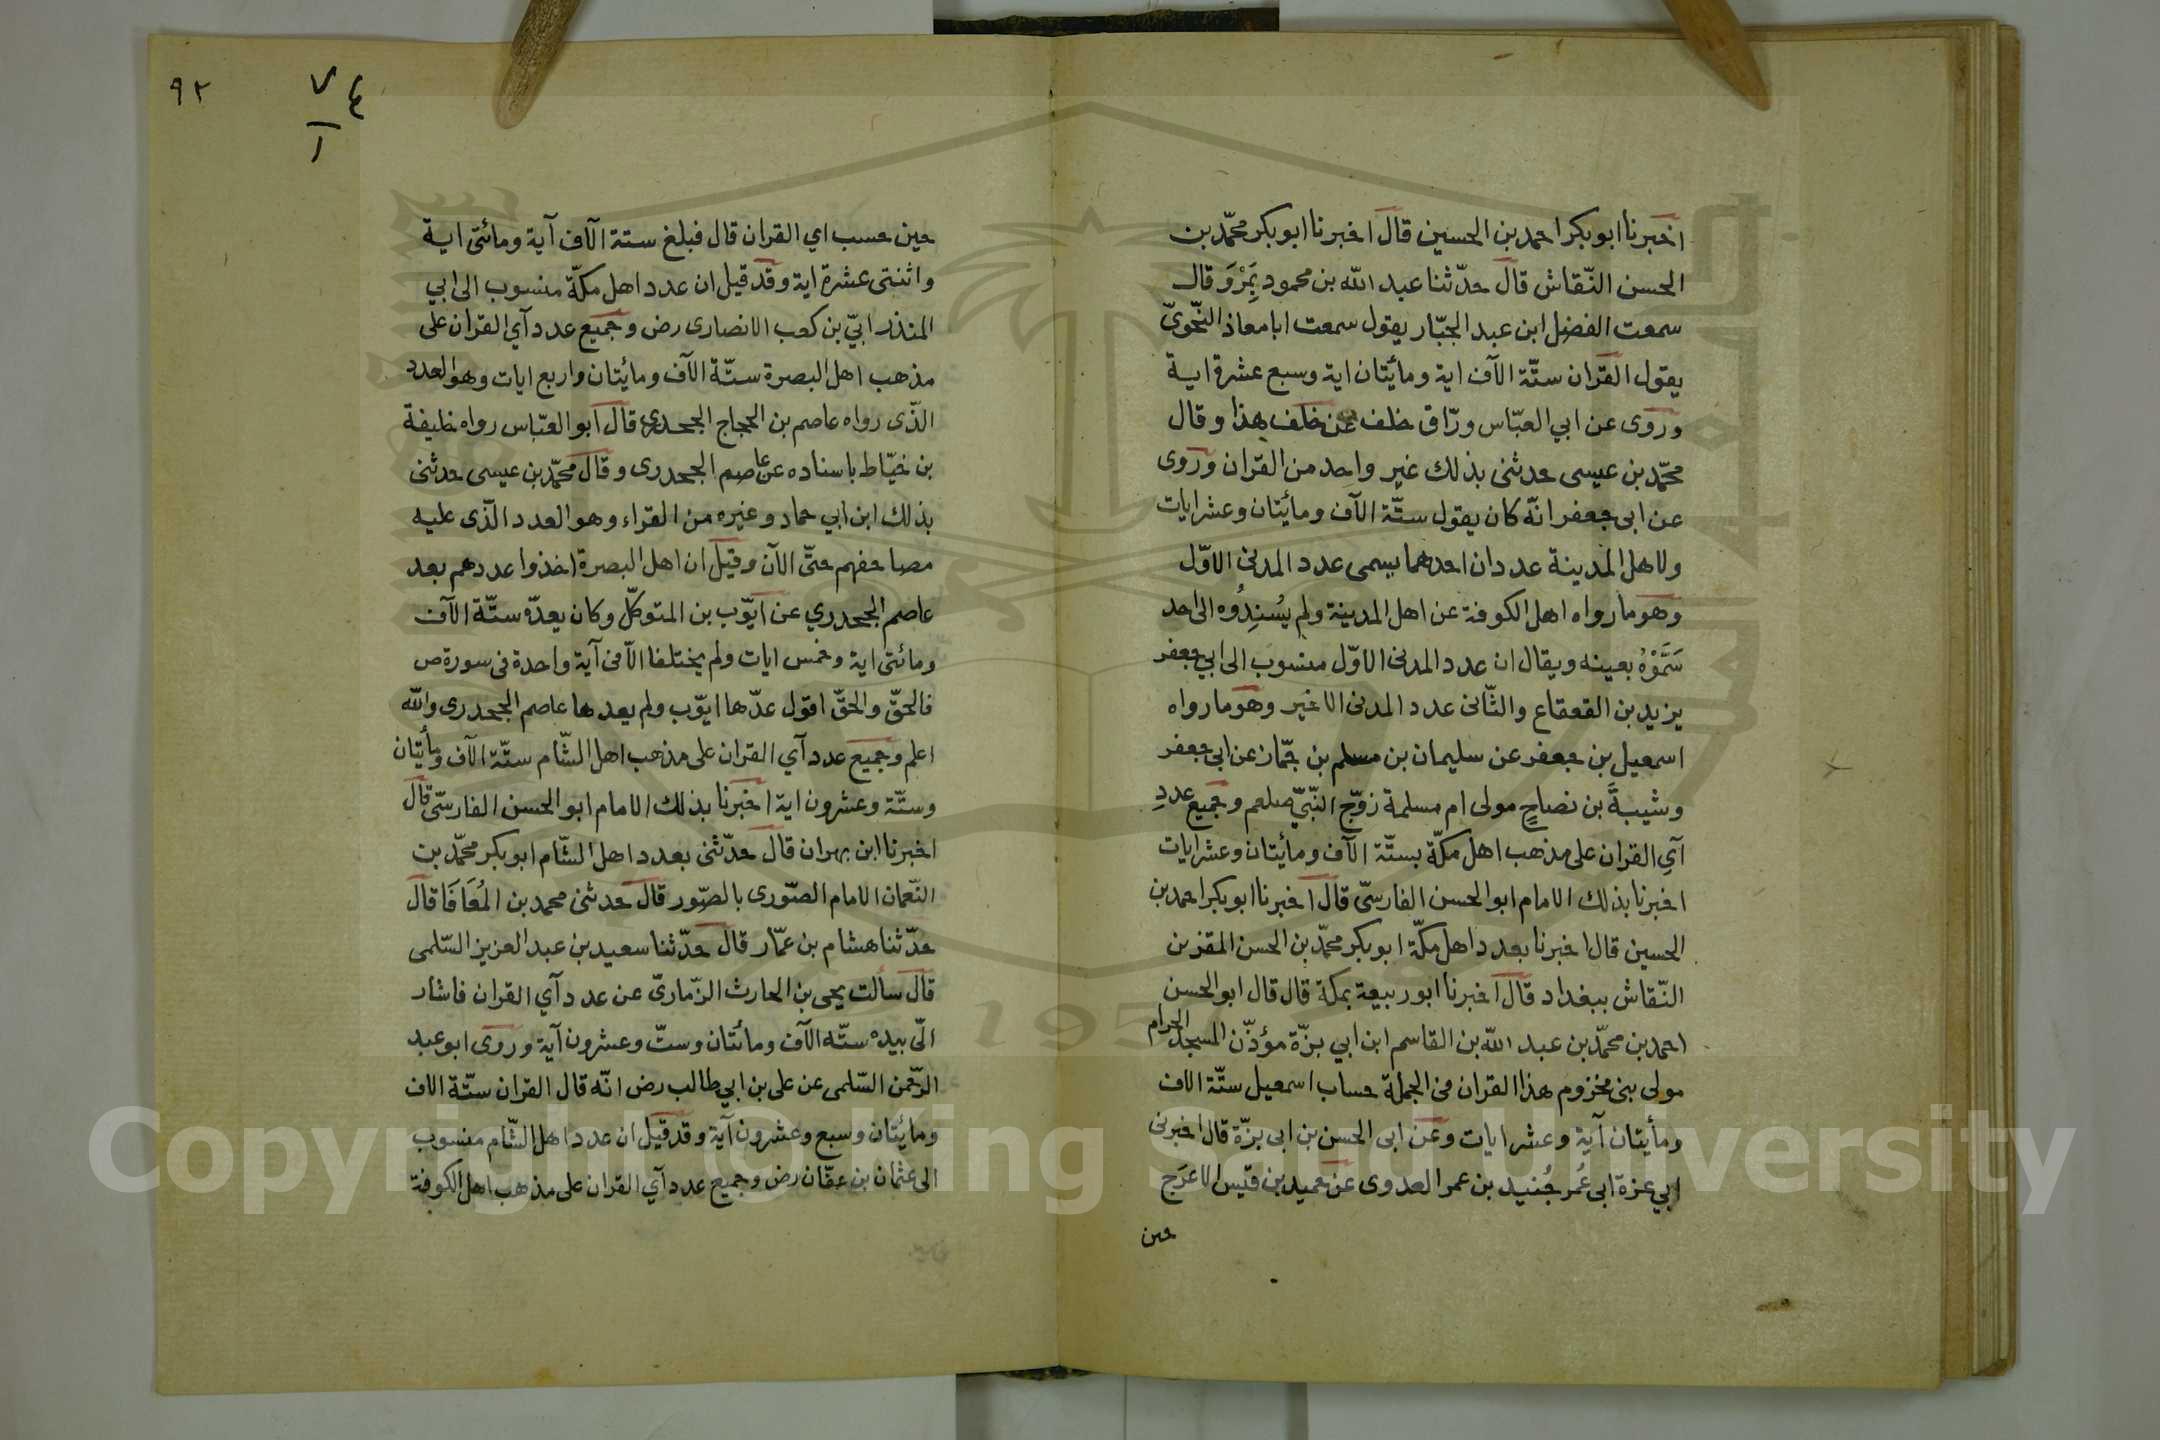 اخبرنا ابوبكر احمد بن الحسين قال اخبرنا ابوبكر محمّد بن
الحسن النّقاش قال حدّثنا عبد الله بن محمود بِمَرْوَ قال
سمعت الفضل ابن عبد الجبّار يقول سمعت ابا معاذ النّحويّ
يقول القرٰان ستّة الآف اية ومأيتان اية وسبع عشرة اية
وروى عن ابي العبّاس ورّاق خلف عن خلف هذا وقال
محمّد بن عيسى حدثنى بذلك غير واحد من القران وروى
عن ابى جعفر انّه كان يقول ستّة الآف ومأيتان وعشر ايات
ولاهل المدينة عددان احدهما يسمى عدد المدنى الاوّل
وهو ما رواه اهل الكوفة عن اهل المدينة ولم يُسنِدُوه الى احد
سَمَّوْهُ بعينه ويقال ان عدد المدنى الاوّل منسوب الى ابي جعفر
يزيد بن القعقاع والثّانى عدد المدنى الاخير وهو ما رواه
اسمعيل بن جعفر عن سليمان بن مسلم بن جمّاز عن ابى جعفر
وشيبةَ بن نصاحٍ مولى ام مسلمة زوّج النّبيّ صلعم وجميع عددِ
آيِ القران على مذهب اهل مكّة بستّة الآف ومأيتان وعشر ايات
اخبرنا بذلك الامام ابو الحسن الفارسّى قال اخبرنا ابوبكر احمد بن
الحسين قال اخبرنا بعدد اهل مكّة ابوبكر محمّد بن الحسن المقز بن
النّقاش ببغداد قال اخبرنا ابو ربيعة بمكة قال قال ابو الحسن
احمد بن محمّد بن عبد الله بن القاسم ابن ابي بزّة مؤذّن المسجد الحرام
مولى بنى مخزوم هذا القران فى الجملة حساب اسمعيل ستّة الاف
ومأيتان آية وعشر ايات وعن ابى الحسن بن ابى بزّة قال اخبرنى
ابي عزة ابى عُمر جُنيد بن عمر العدوى عن حميد بن قيّس الاعرَج
حين
٩٢
٧٤
١
حين حسب اي القران قال فبلغ ستة الآف آية ومائتى اية
واثنتى عشرة اية وقد قيل ان عدد اهل مكّة منسوب الى ابي
المنذر ابيّ بن كعب الانصارى رض وجميع عدد آي القران على
مذهب اهل البصرة ستّة الآف ومائيتان واربع ايات وهو العدد
الذّى رواه عاصم بن الحجاج الجحدرى قال ابو العبّاس رواه خليفة
بن خيّاط باسناده عن عاصم الجحدرى وقال محمّد بن عيسى حدثنى
بذلك ابن ابي حماد وغيره من القراء وهو العدد الذّى عليه
مصاحفهم حتّى الآن وقيل ان اهل البصرة اخذوا عددهم بعد
عاصم الجحدري عن ايّوب بن المتوكّل وكان يعدّه ستّة الآف
ومائتى اية وخمس ايات ولم يختلفا الاّ فى آية واحدة فى سورة ص
فالحقّ والحقّ اقول عدّها ايّوب ولم يعدها عاصم الجحدرى والله
اعلم وجميع عدد آي القران على مذهب اهل الشّام ستّة الآف ومأيتان
وستّة وعشرون اية اخبرنا بذلك الامام ابو الحسن الفارسّى قال
اخبرنا ابن بهران قال حدّثنى بعدد اهل الشّام ابوبكر محمّد بن
النّعمان الامام الصّورى بالصّور قال حدثنى محمد بن المُعَافَا قال
حدّثنا هشام بن عمّار قال حدّثنا سعيد بن عبد العزيز السّلمى
قال سألت يحيى بن الحارث الزّمارىّ عن عدد آي القران فاشار
الّى بيده ستّه الآف ومائتان وستّ وعشرون آية وروى ابو عبد
الرّحمن السّلمى عن على بن ابي طالب رض انّه قال القران ستّة الاف
ومايئتان وسبع وعشرون آية وقد قيل ان عدد اهل الشّام منسوب
الى عثمان بن عفّان رض وجميع عدد آي القران على مذهب اهل الكوفة
1957
Copyright © King Saud University